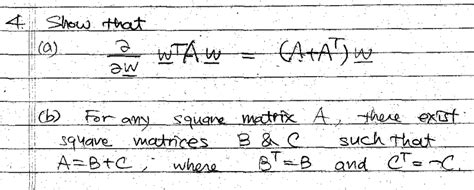 4. Show that
(a) ∂/∂w wᵀA w = (A+Aᵀ) w
(b) For any square matrix A, there exist
square matrices B & C such that
A=B+C, where Bᵀ=B and Cᵀ=-C.